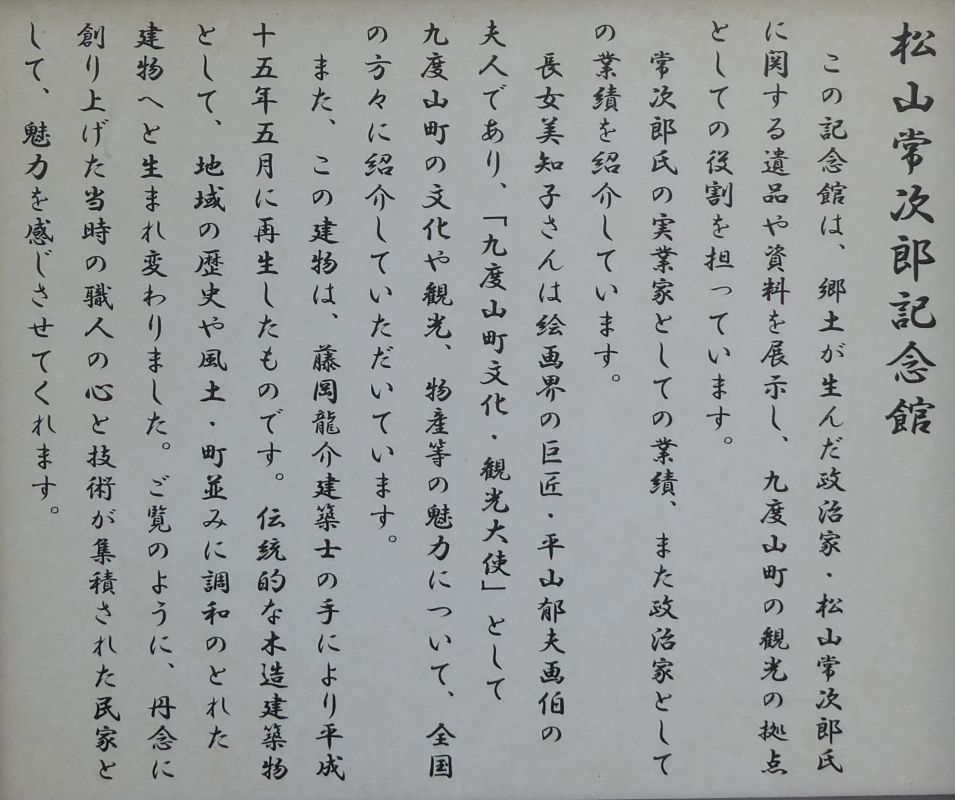 松山常次郎記念館
この記念館は、郷土が生んだ政治家・松山常次郎氏
に関する遺品や資料を展示し、九度山町の観光の拠点
としての役割を担っています。
常次郎氏の実業家としての業績、また政治家として
の業績を紹介しています。
長女美知子さんは絵画界の巨匠・平山郁夫画伯の
夫人であり、「九度山町文化・観光大使」として
九度山町の文化や観光、物産等の魅力について、全国
の方々に紹介していただいています。
また、この建物は、藤岡龍介建築士の手により平成
十五年五月に再生したものです。伝統的な木造建築物
として、地域の歴史や風土・町並みに調和のとれた
建物へと生まれ変わりました。ご覧のように、丹念に
創り上げた当時の職人の心と技術が集積された民家と
して、魅力を感じさせてくれます。